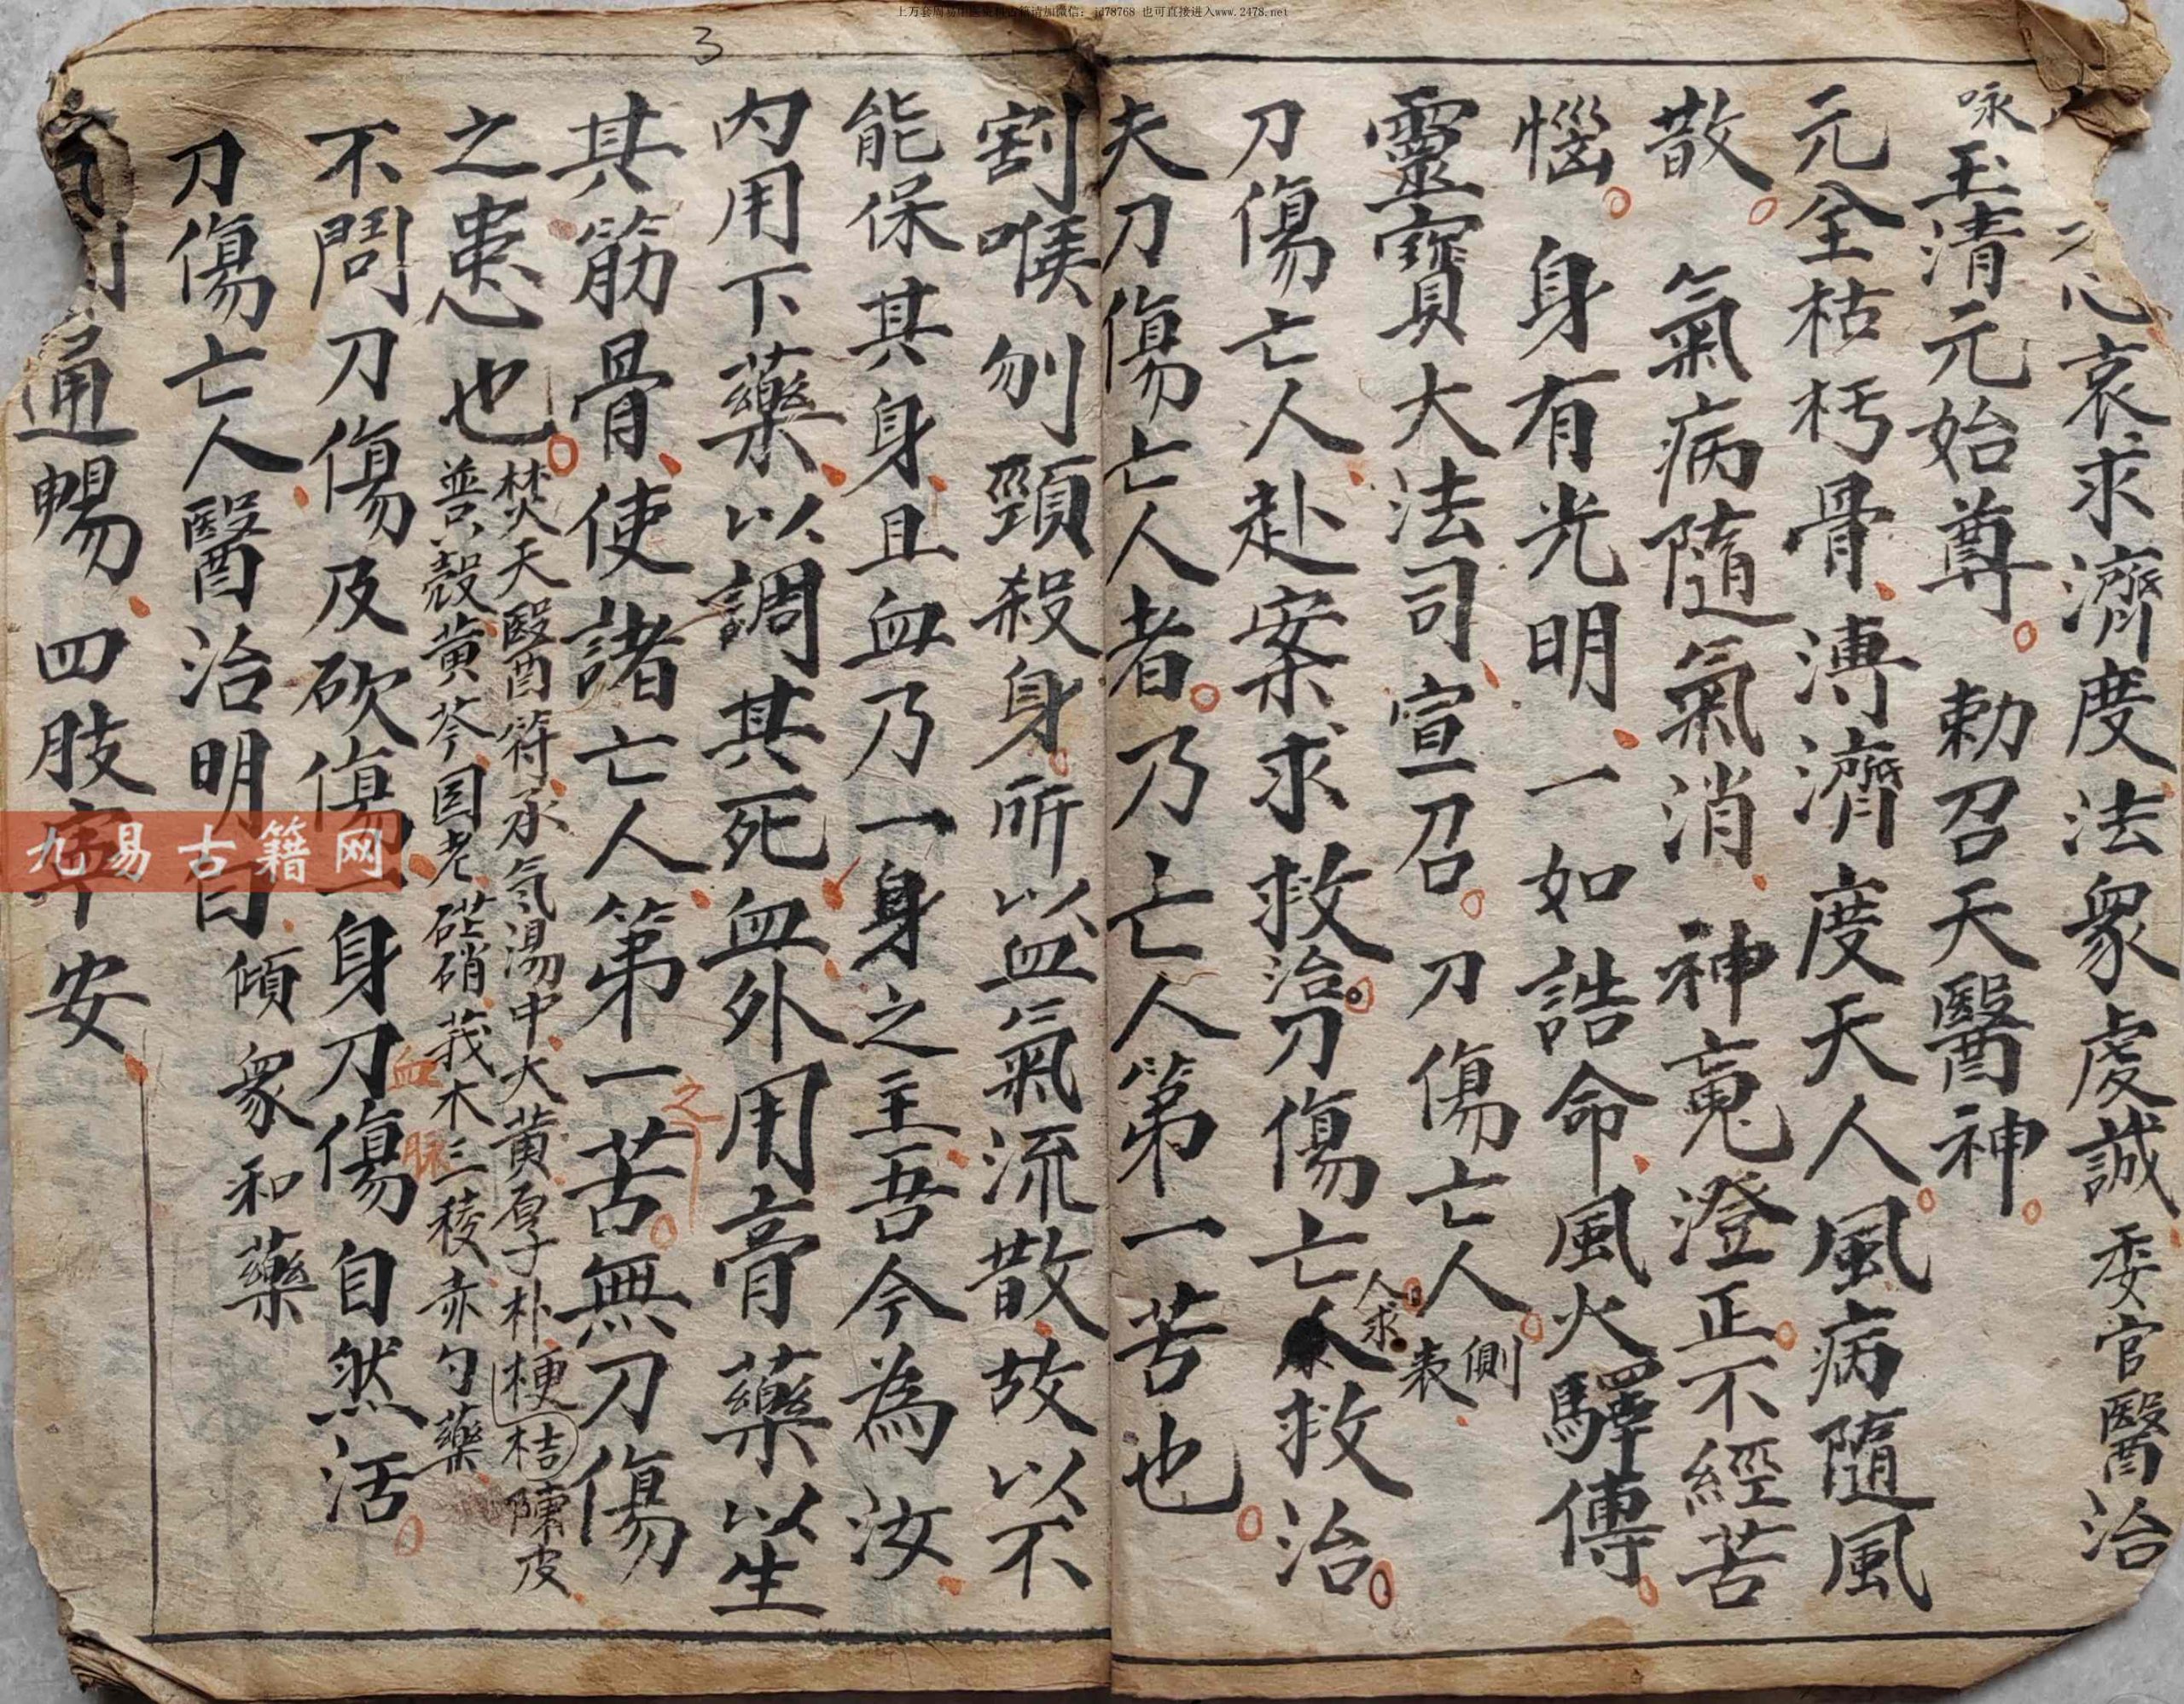 上万套周易中医类古籍请加微信：jd78768 也可直接进入www.2478.net
3
哀求濟度法衆虔誠 委官醫治
咏 玉清元始尊 勅召天醫神
元全枯朽骨溥濟度天人風病隨風
散 氣病隨氣消 神䰟澄正不經苦
惱 身有光明一如誥命風火驛傳
靈寶大法司宣召 刀傷亡人 側表
刀傷亡人赴案求救治刀傷亡人救治
人求
夫刀傷亡人者乃亡人第一苦也
割喉刎頸殺身所以血氣流散故以不
能保其身且血乃一身之主吾今為汝
內用下藥以調其死血外用膏藥以生
其筋骨使諸亡人第一苦無刀傷
之
之患也
焚天醫符承氣湯中大黃厚子朴梗桔陳皮
黃芩国老硭硝莪木三稜赤勺藥
不問刀傷及砍傷一身刀傷自然活
血脈
刀傷亡人醫治明白 傾衆和藥
通暢四肢安
九易古籍网